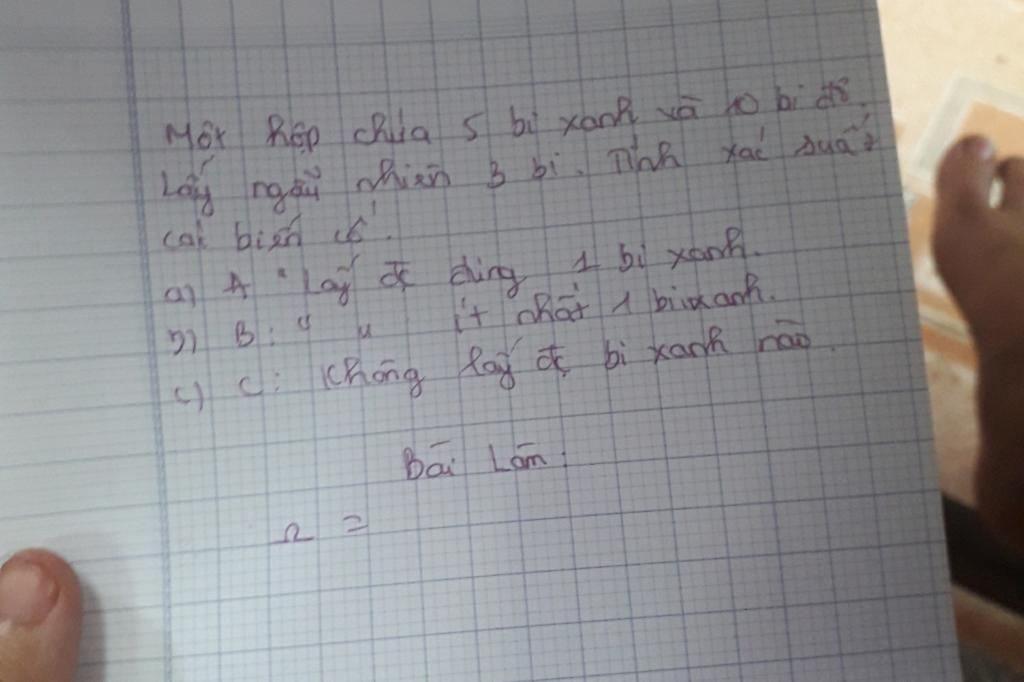 Một hộp chứa 5 bi xanh và 10 bi đỏ.
Lấy ngẫu nhiên 3 bi. Tính xác suất
các biến cố.
a) A "Lấy đc đúng 1 bi xanh.
b) B: " " ít nhất 1 bi xanh.
c) C: Không lấy đc bi xanh nào.
Bài Làm:
Ω =